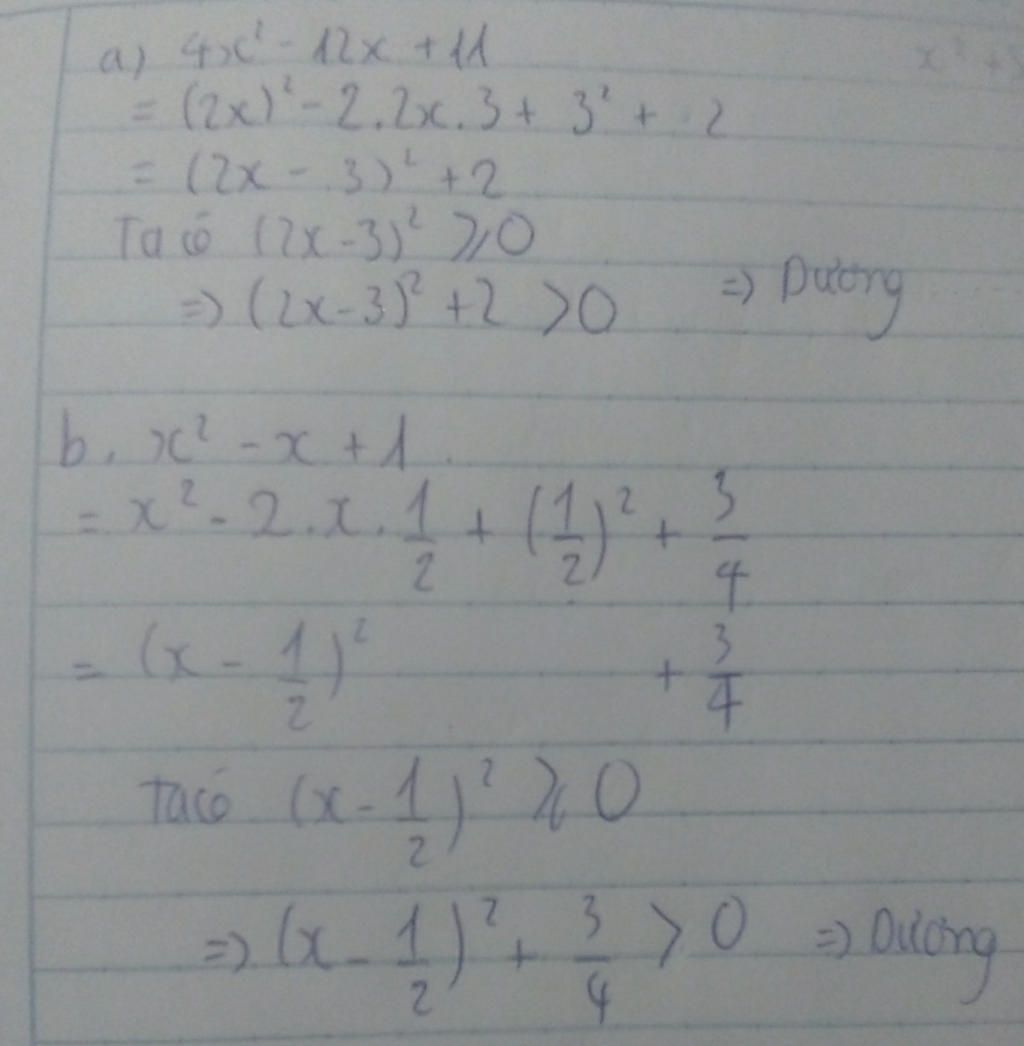 a) 4x² - 12x + 11
= (2x)² - 2.2x.3 + 3² + 2
= (2x - 3)² + 2
Ta có (2x-3)² ⩾ 0
=> (2x-3)² + 2 > 0 => Dương
b. x² - x + 1
= x² - 2.x.1/2 + (1/2)² + 3/4
= (x - 1/2)² + 3/4
Ta có (x - 1/2)² ⩾ 0
=> (x - 1/2)² + 3/4 > 0 => Dương